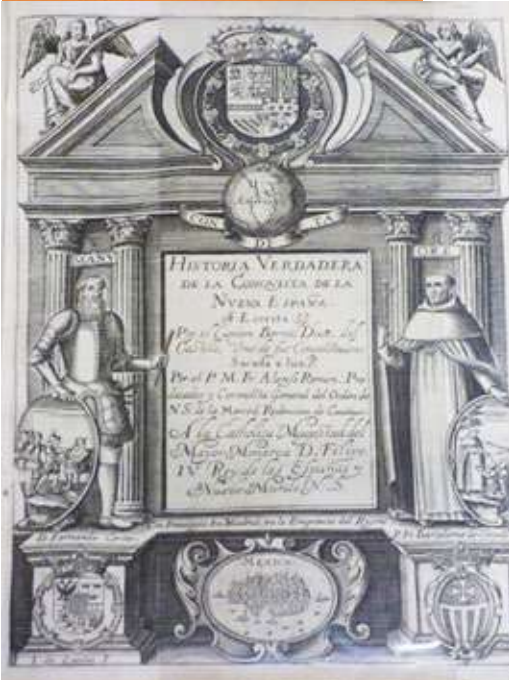 CON
DE
TA
MANV
ORE
HISTORIA VERDADERA
DE LA CONQVISTA DE LA
NVEVA ESPAÑA
Escrita
Por el Capitan Bernal Diaz del
Castillo, Vno de sus Conquistadores.
Sacada a luz
Por el P. M. Fr. Alonso Remon, Pre
dicador y Coronista General del Orden de
N. S. de la Merced Redencion de Cautiuos.
A la Catholica Magestad del
Mayor Monarca D. Filipe
IV Rey de las Españas y
Nuevo Mundo N. S.
en Madrid en la Emprenta del Reyno
D. Fernando Cortes
P. F. Bartolome de
MEXICO